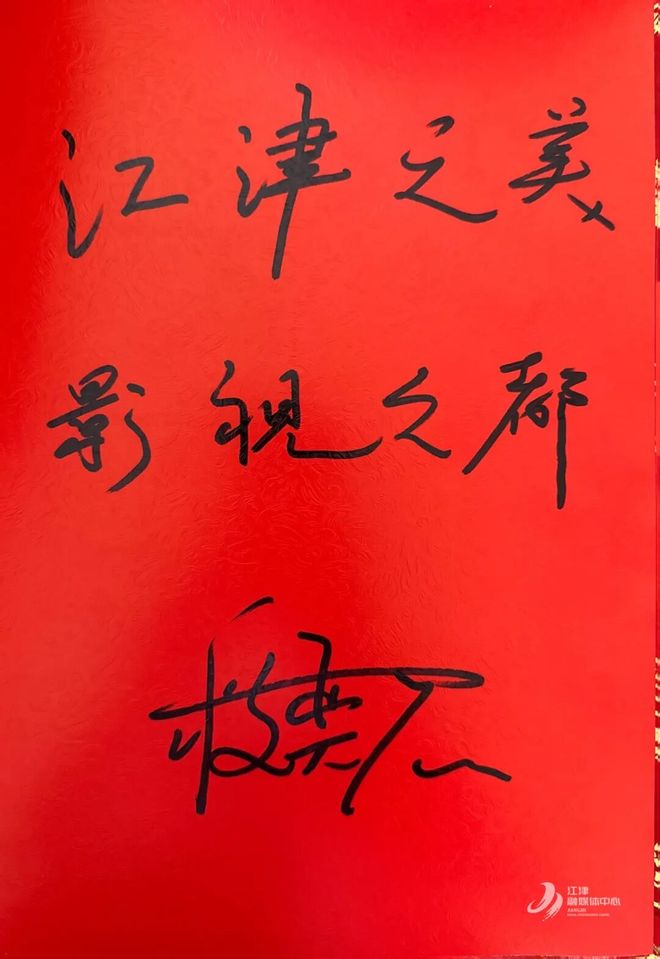 江津之美
影视之都
江津
融媒体中心